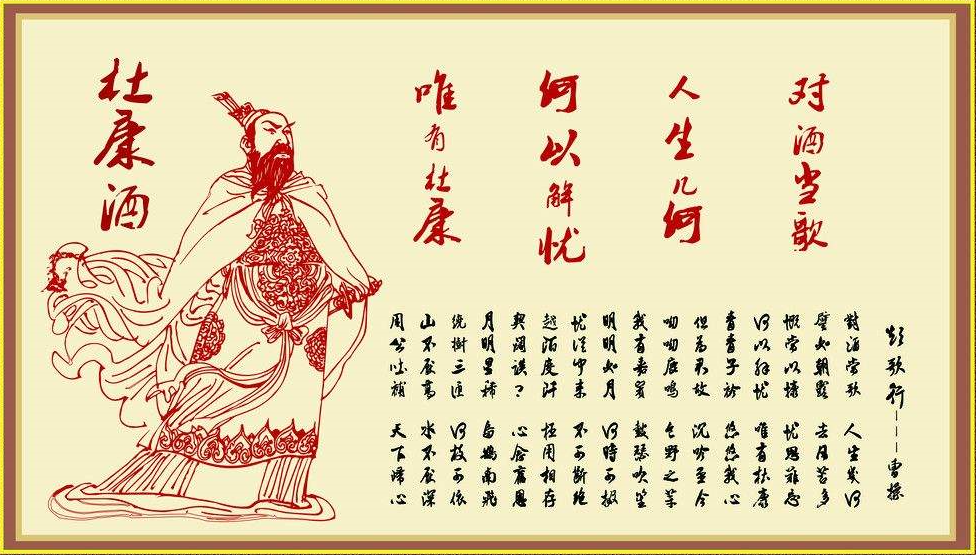 对酒当歌
人生几何
何以解忧
唯有杜康
杜康酒
短歌行———曹操
對酒當歌 人生幾何
譬如朝露 去日苦多
慨當以慷 忧思難忘
何以解忧 唯有杜康
青青子衿 悠悠我心
但為君故 沉吟至今
呦呦鹿鸣 食野之苹
我有嘉賓 鼓瑟吹笙
明明如月 何時可掇
忧從中来 不可断绝
越陌度阡 枉用相存
契阔谈？ 心念舊恩
月明星稀 乌鹊南飛
绕樹三匝 何枝可依
山不厌高 水不厌深
周公吐哺 天下歸心